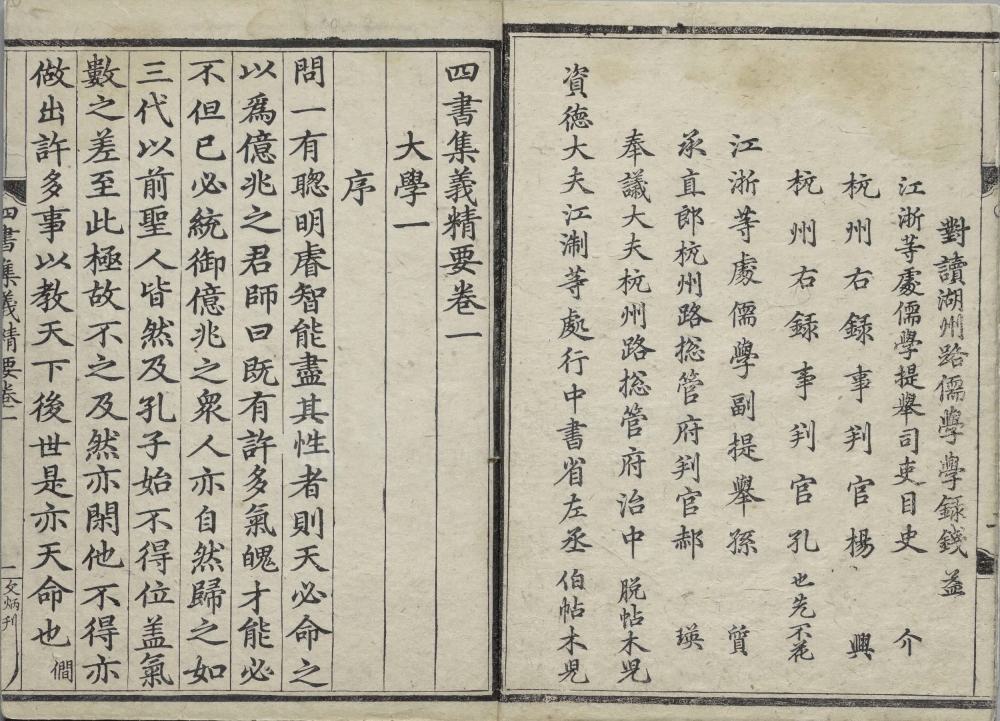 對讀湖州路儒學學録錢 益
江浙等處儒學提舉司吏目史 介
杭州右録事判官楊 興
杭州右録事判官孔 也先不花
江浙等處儒學副提舉孫 質
承直郎杭州路捴管府判官郝 瑛
奉議大夫杭州路捴管府治中 脱帖木兒
資德大夫江淛等處行中書省左丞 伯帖木兒
四書集義精要卷一
大學一
序
問一有聦明睿智能盡其性者則天必命之
以爲億兆之君師曰既有許多氣魄才能必
不但已必統御億兆之衆人亦自然歸之如
三代以前聖人皆然及孔子始不得位盖氣
數之差至此極故不之及然亦閑他不得亦
做出許多事以教天下後世是亦天命也 僩
四書集義精要卷一
一
文炳刊